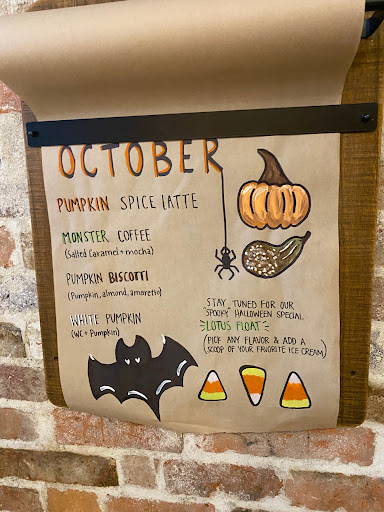 OCTOBER
PUMPKIN SPICE LATTE
MONSTER COFFEE
(Salted Caramel + mocha)
PUMPKIN BISCOTTI
(Pumpkin, almond, amaretto)
WHITE PUMPKIN
(WC + Pumpkin)
STAY TUNED FOR OUR
SPOOKY HALLOWEEN SPECIAL
LOTUS FLOAT
(PICK ANY FLAVOR & ADD A
SCOOP OF YOUR FAVORITE ICE CREAM)